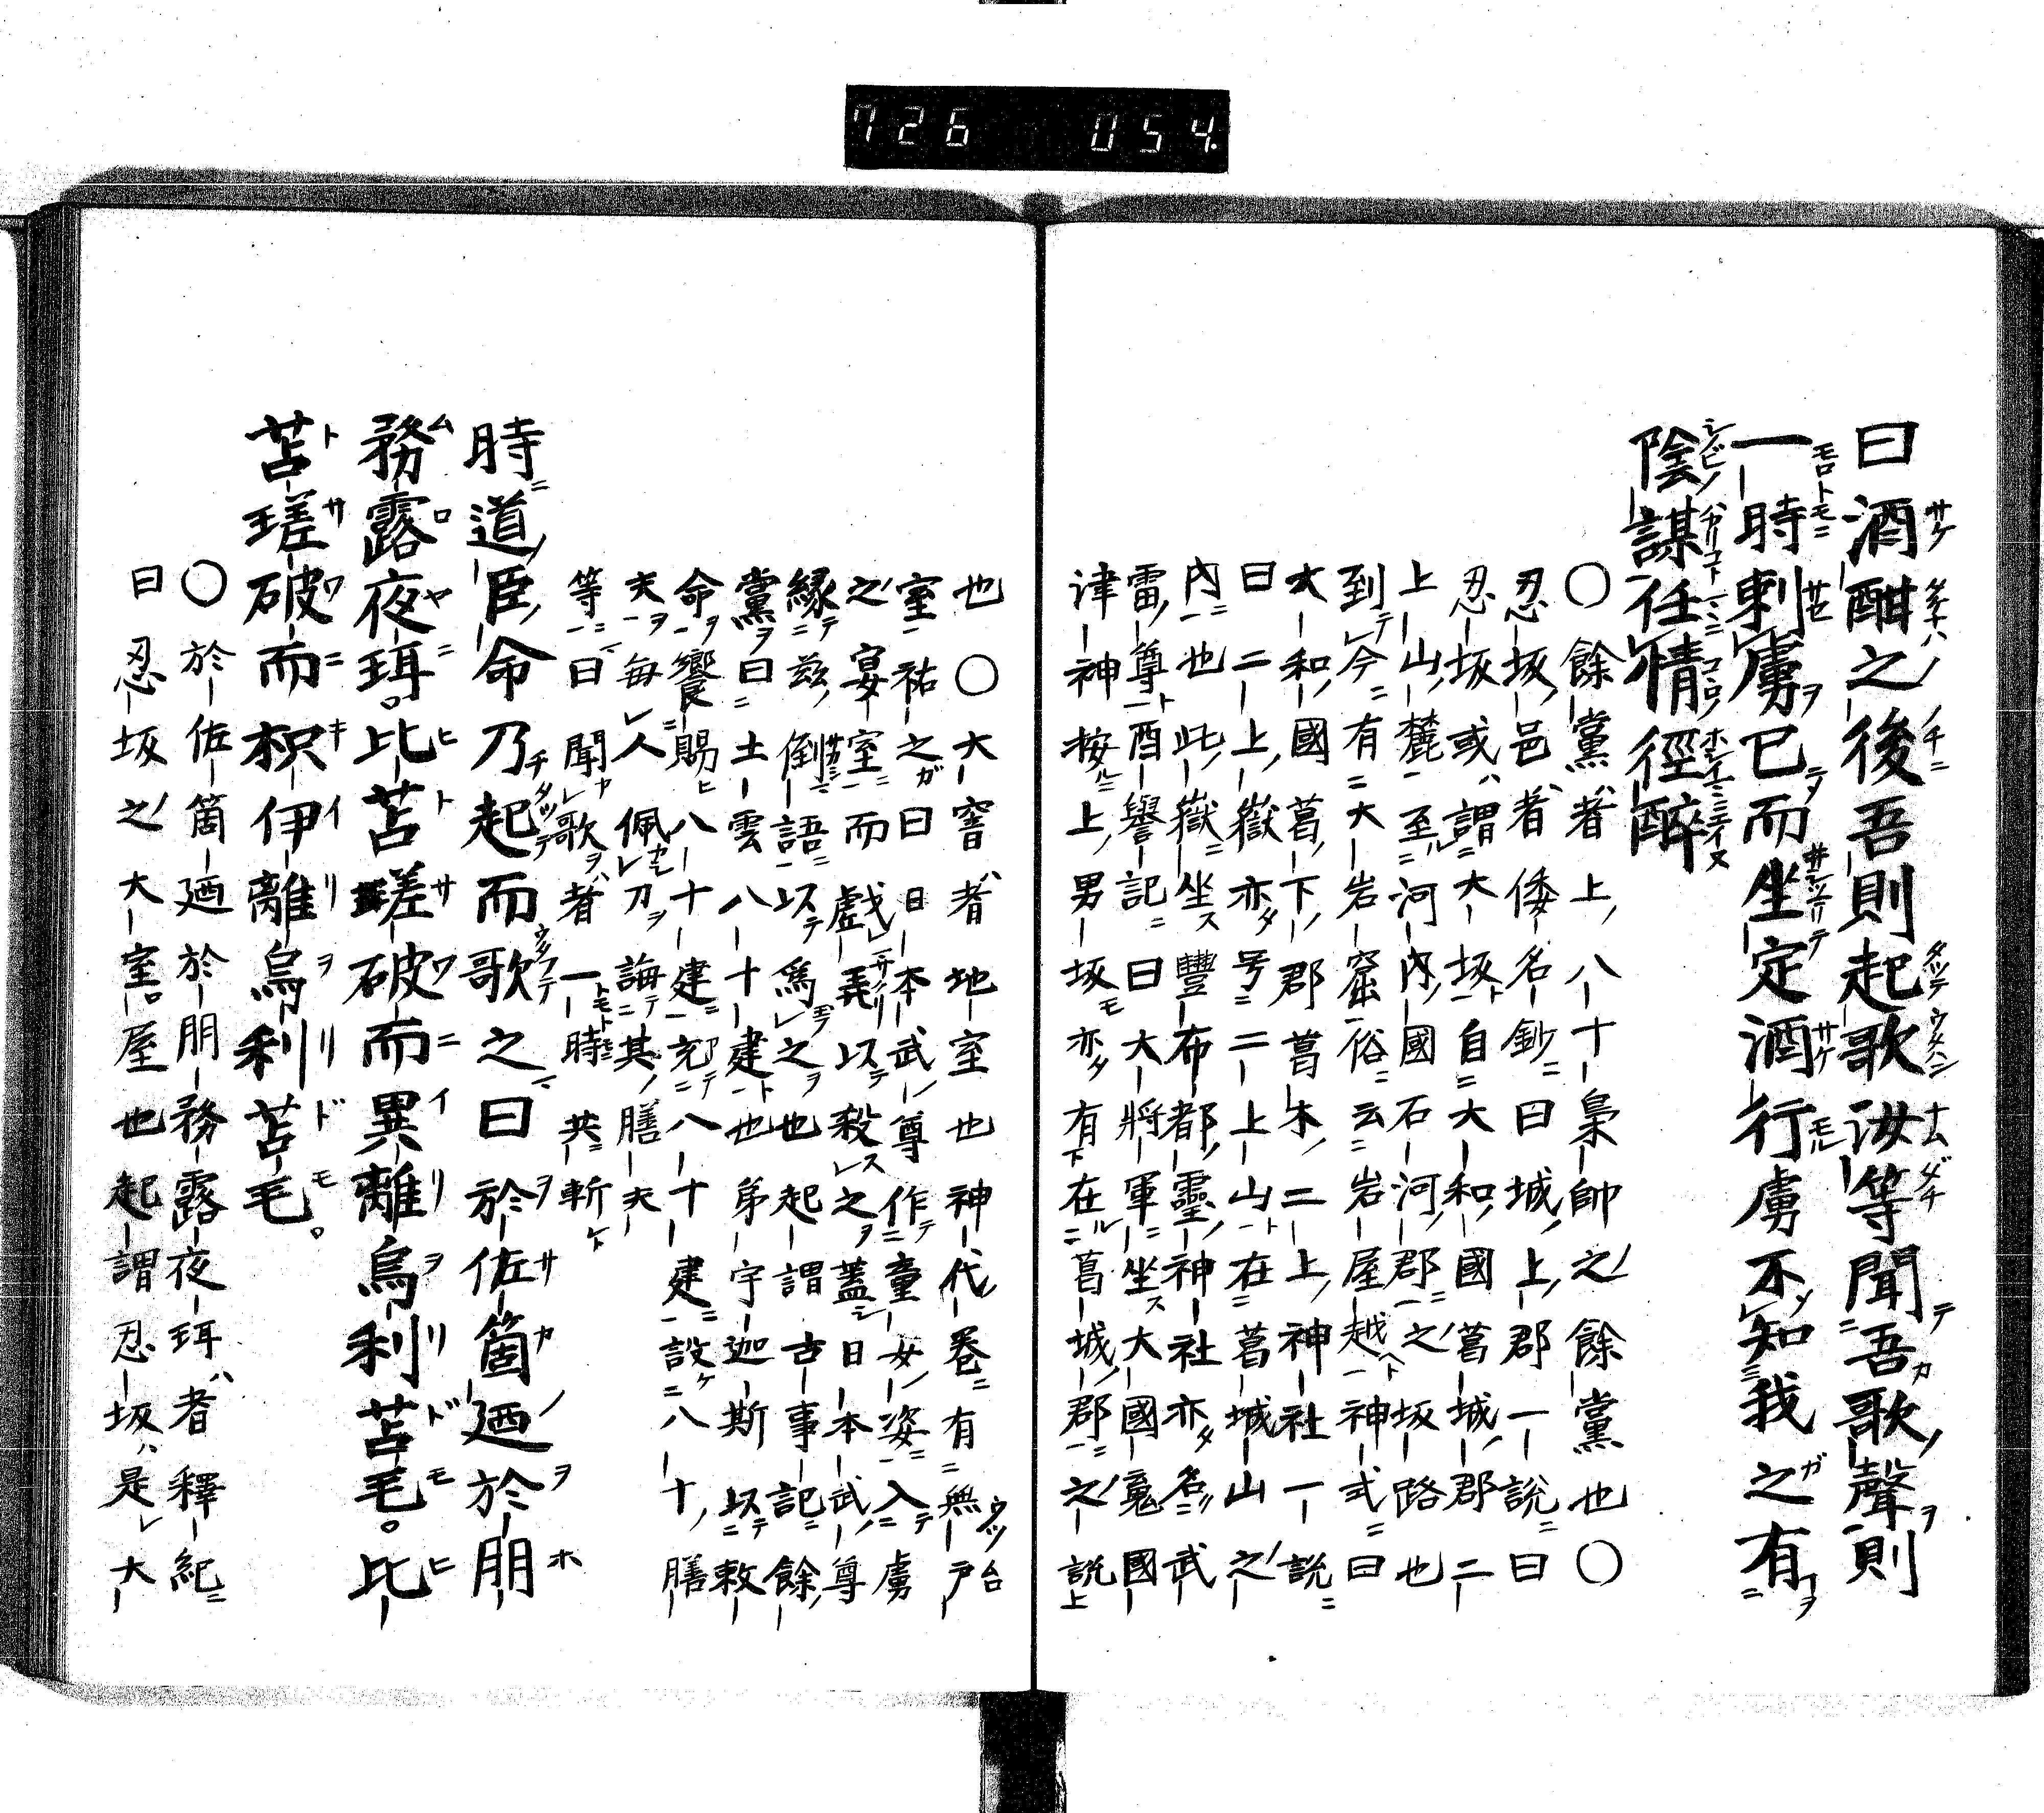 726 054.
曰酒酣之後吾則起歌汝等聞吾歌聲則
一時刺虜已而坐定酒行虜不知我之有
陰謀任情徑醉
〇餘黨者上八十梟帥之餘黨也〇
忍坂邑者倭名鈔曰城上郡一說曰
忍坂或謂大坂自大和國葛城郡二
上山麓至河內國石河郡之坂路也
到今有大岩窟俗云岩屋越神式曰
大和國葛下郡葛木二上神社一說
曰二上嶽亦号二上山在葛城山之
內也此嶽坐豐布都靈神社亦名武
雷尊酉譽記曰大將軍坐大國魂國
津神按上男坂亦有在葛城郡之說上
也〇大窨者地室也神代卷有無戶
室祐之曰日本武尊作童女姿入虜
之宴室而戲弄以殺之蓋日本武尊
緣茲倒語以為之也起謂古事記餘
黨曰土雲八十建也弟宇迦斯以敕
命饗賜八十建宛八十建設八十膳
夫每人佩刀誨其膳夫
等曰聞歌者一時共斬
時道臣命乃起而歌之曰於佐箇廼於朋
務露夜珥比苫瑳破而異離烏利苫毛比
苫瑳破而枳伊離烏利苫毛
〇於佐箇廼於朋務露夜珥者釋紀
曰忍坂之大室屋也起謂忍坂是大